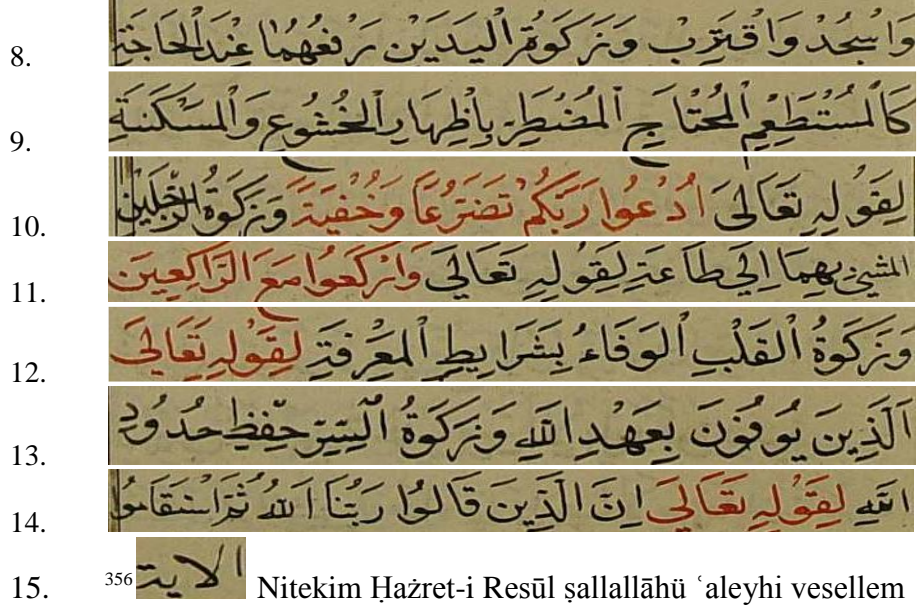 8. وَاسْجُدْ وَاقْتَرِبْ وَزَكَوةُ الْيَدَيْنِ رَفْعُهُمَا عِنْدَ الْحَاجَةِ
9. كَالْمُسْتَطْعِمِ الْمُحْتَاجِ الْمُضْطَرِّ بِاِظْهَارِ الْخُشُوعِ وَالْمَسْكَنَةِ
10. لِقَوْلِهِ تَعَالَى اُدْعُوا رَبَّكُمْ تَضَرُّعًا وَخُفْيَةً وَزَكَوةُ الرِّجْلَيْنِ
11. المَشْيُ بِهِمَا اِلَى طَاعَتِهِ لِقَوْلِهِ تَعَالَى وَارْكَعُوا مَعَ الرَّاكِعِينَ
12. وَزَكَوةُ الْقَلْبِ الْوَفَاءُ بِشَرَايِطِ الْمَعْرِفَةِ لِقَوْلِهِ تَعَالَى
13. اَلَّذِينَ يُوفُونَ بِعَهْدِ اللّٰهِ وَزَكَوةُ السِّرِّ حِفْظُ حُدُودِ
14. اللّٰهِ لِقَوْلِهِ تَعَالَى اِنَّ الَّذِينَ قَالُوا رَبُّنَا اللّٰهُ ثُمَّ اسْتَقَامُوا
15. 356 الاية Nitekim Ḥażret-i Resūl ṣallallāhü ʿaleyhi vesellem